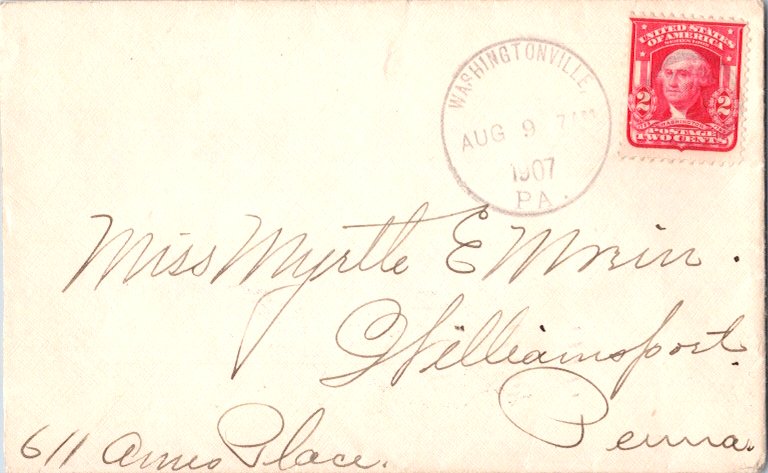 WASHINGTONVILLE,
AUG 9 7AM
1907
PA.
UNITED STATES
OF AMERICA
SERIES 1902
2 2
1732 WASHINGTON 1799
POSTAGE
TWO CENTS
Miss Myrtle E
Williamsport
Penna.
611 Ames Place.